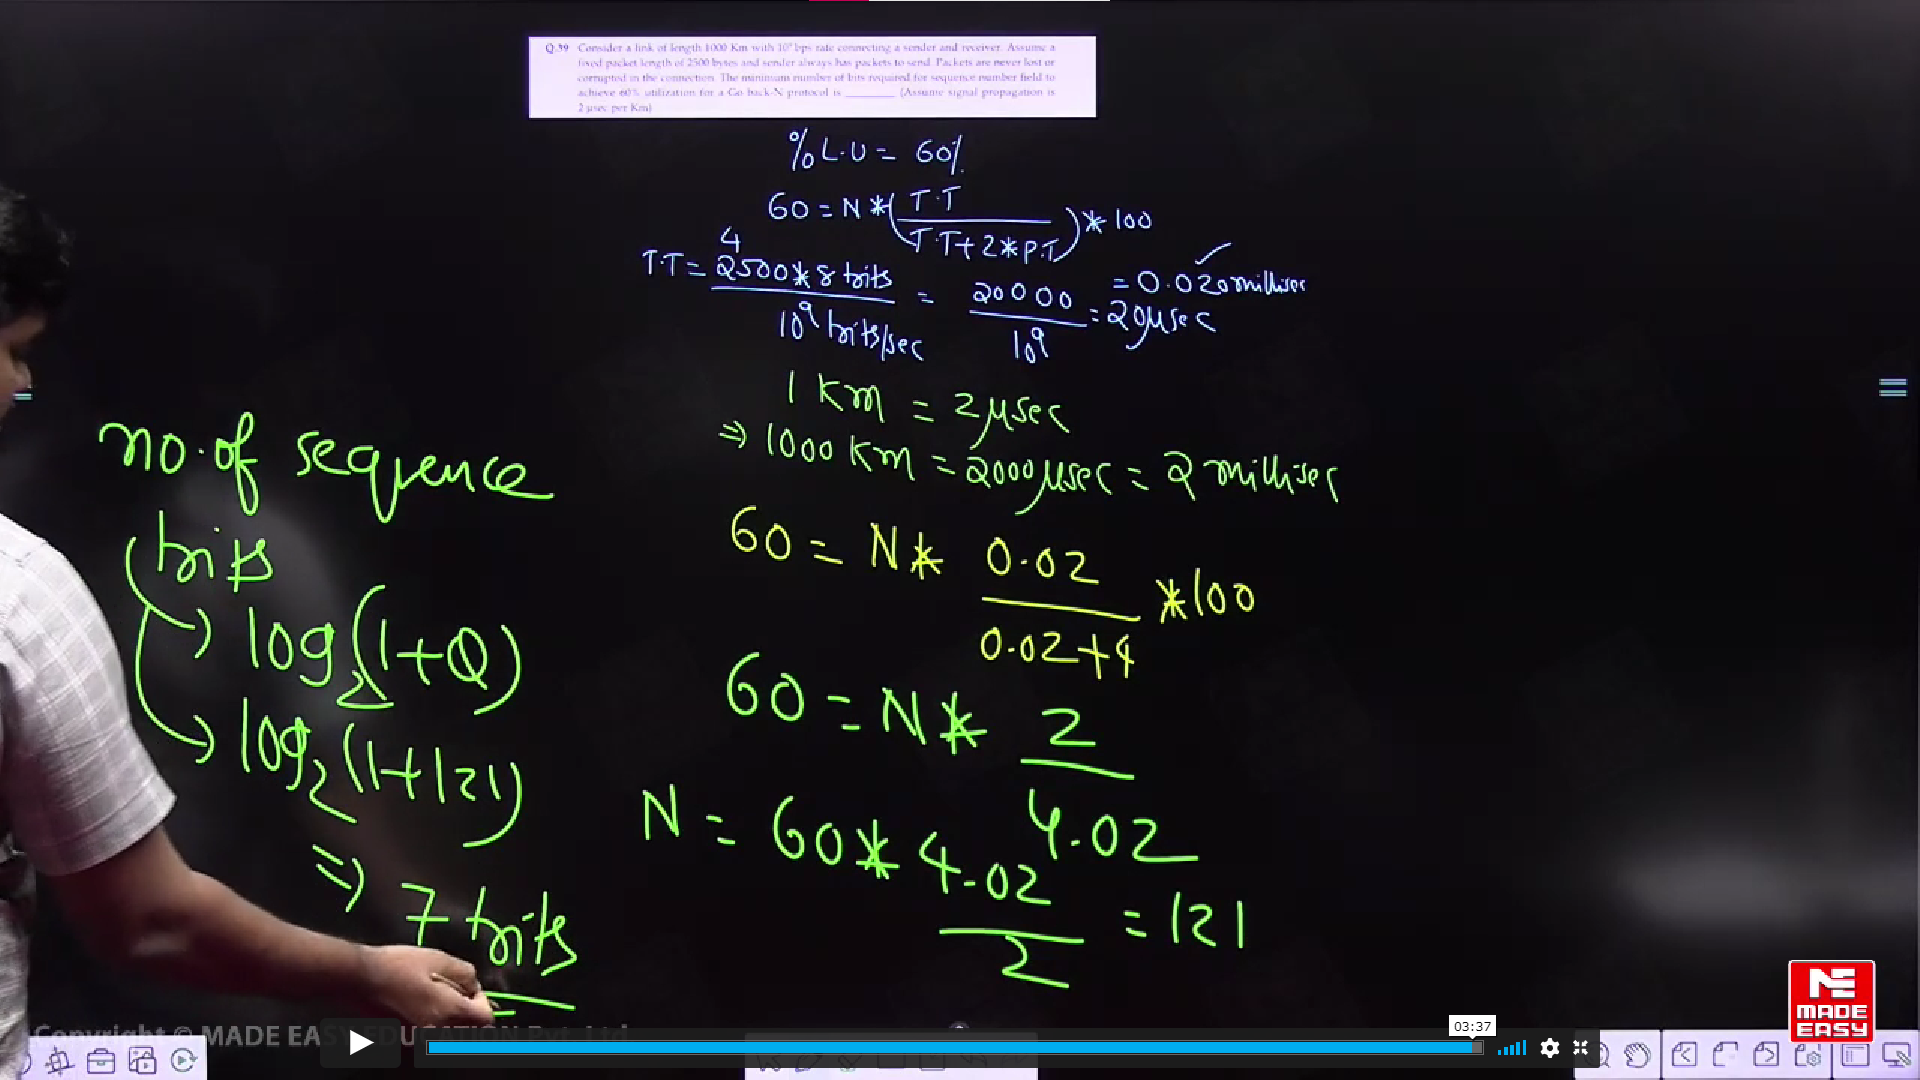 Q.59 Consider a link of length 1000 Km with 10⁹ bps rate connecting a sender and receiver. Assume a
fixed packet length of 2500 bytes and sender always has packets to send. Packets are never lost or
corrupted in the connection. The minimum number of bits required for sequence number field to
achieve 60% utilization for a Go back-N protocol is ________ (Assume signal propagation is
2 μsec per Km)
% L.U = 60%
60 = N * (T.T / (T.T + 2 * P.T)) * 100
4
T.T = 2500 * 8 bits / 10⁹ bits/sec = 20000 / 10⁹ = 20 μsec
= 0.020 millisec
1 Km = 2 μsec
⇒ 1000 Km = 2000 μsec = 2 millisec
60 = N * 0.02 / 0.02+4 * 100
60 = N * 2 / 4.02
N = 60 * 4.02 / 2 = 121
no. of sequence
bits
→ log₂(1+Q)
→ log₂(1+121)
⇒ 7 bits
Copyright © MADE EASY EDUCATION Pvt. Ltd
03:37
MADE
EASY